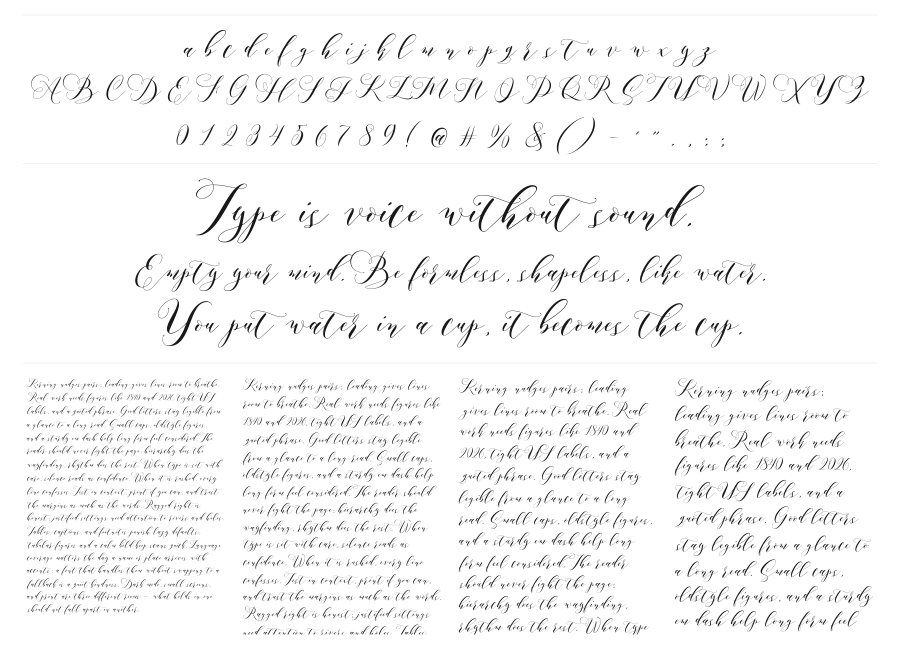 a b c d e f g h i j k l m n o p q r s t u v w x y z
A B C D E F G H I J K L M N O P Q R S T U V W X Y Z
0 1 2 3 4 5 6 7 8 9 ! @ # % & ( ) – ' " . , : ;
Type is voice without sound.
Empty your mind. Be formless, shapeless, like water.
You put water in a cup, it becomes the cup.
Kerning nudges pairs; leading gives lines room to breathe.
Real work needs figures like 1890 and 2026, tight UI
labels, and a quoted phrase. Good letters stay legible from
a glance to a long read. Small caps, oldstyle figures,
and a sturdy em dash help long form feel considered. The
reader should never fight the page; hierarchy does the
wayfinding, rhythm does the rest. When type is set with
care, silence reads as confidence. When it is rushed, every
line confesses. Test in context, print if you can, and trust
the margins as much as the words. Ragged right is
honest; justified settings need attention to rivers and holes.
Tables, captions, and footnotes punish lazy defaults;
tabular figures and a calm bold keep
coverage matters the day a name or place arrives with
accents; a font that handles them without swapping to a
fallback is a quiet kindness. Dark mode, small screens,
and print are three different rooms — what holds in one
should not fall apart in another.
Kerning nudges pairs; leading gives lines
room to breathe. Real work needs figures like
1890 and 2026, tight UI labels, and a
quoted phrase. Good letters stay legible
from a glance to a long read. Small caps,
oldstyle figures, and a sturdy em dash help
long form feel considered. The reader should
never fight the page; hierarchy does the
wayfinding, rhythm does the rest. When
type is set with care, silence reads as
confidence. When it is rushed, every line
confesses. Test in context, print if you can,
and trust the margins as much as the words.
Ragged right is honest; justified settings
need attention to rivers and holes. Tables,
Kerning nudges pairs; leading
gives lines room to breathe. Real
work needs figures like 1890 and
2026, tight UI labels, and a
quoted phrase. Good letters stay
legible from a glance to a long
read. Small caps, oldstyle figures,
and a sturdy em dash help long
form feel considered. The reader
should never fight the page;
hierarchy does the wayfinding,
rhythm does the rest. When type
Kerning nudges pairs;
leading gives lines room to
breathe. Real work needs
figures like 1890 and 2026,
tight UI labels, and a
quoted phrase. Good letters
stay legible from a glance to
a long read. Small caps,
oldstyle figures, and a sturdy
em dash help long form feel